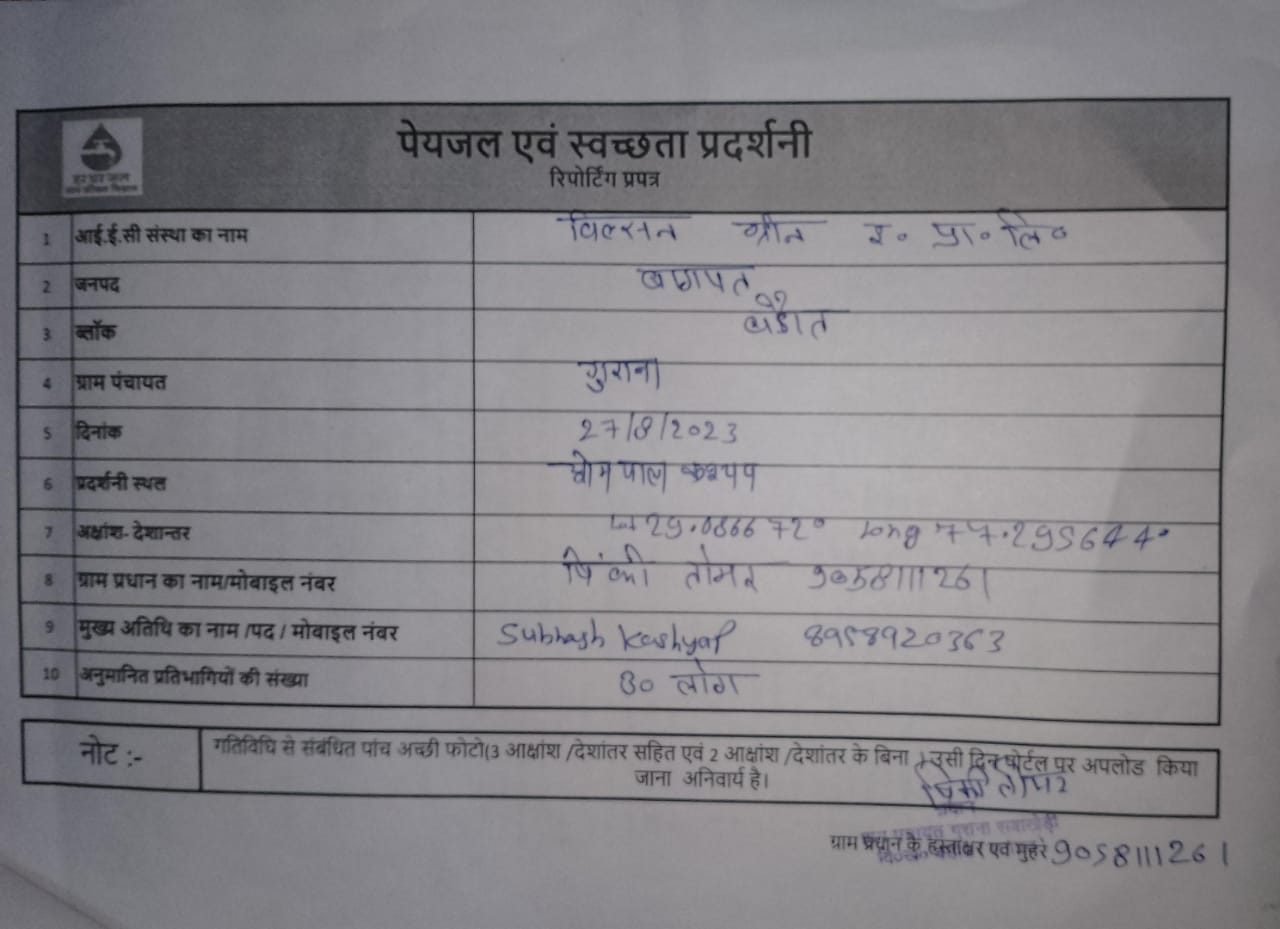 हर घर जल
पेयजल एवं स्वच्छता प्रदर्शनी
रिपोर्टिंग प्रपत्र
1 आई.ई.सी संस्था का नाम विल्सन ग्रीन इ० प्रा० लि०
2 जनपद बागपत
3 ब्लॉक बडौत
4 ग्राम पंचायत गुराना
5 दिनांक 27/8/2023
6 प्रदर्शनी स्थल ओमपाल कश्यप
7 अक्षांश- देशान्तर 29.086672° long 77.295644°
8 ग्राम प्रधान का नाम/मोबाइल नंबर पिंकी तोमर 9058111261
9 मुख्य अतिथि का नाम /पद / मोबाइल नंबर Subhash Kashyap 8958920363
10 अनुमानित प्रतिभागियों की संख्या लोग
नोट :- गतिविधि से संबंधित पांच अच्छी फोटो(3 आक्षांश /देशांतर सहित एवं 2 आक्षांश /देशांतर के बिना ) उसी दिन पोर्टल पर अपलोड किया
जाना अनिवार्य है।
पिंकी तोमर
ग्राम प्रधान के हस्ताक्षर एवं मुहर 9058111261